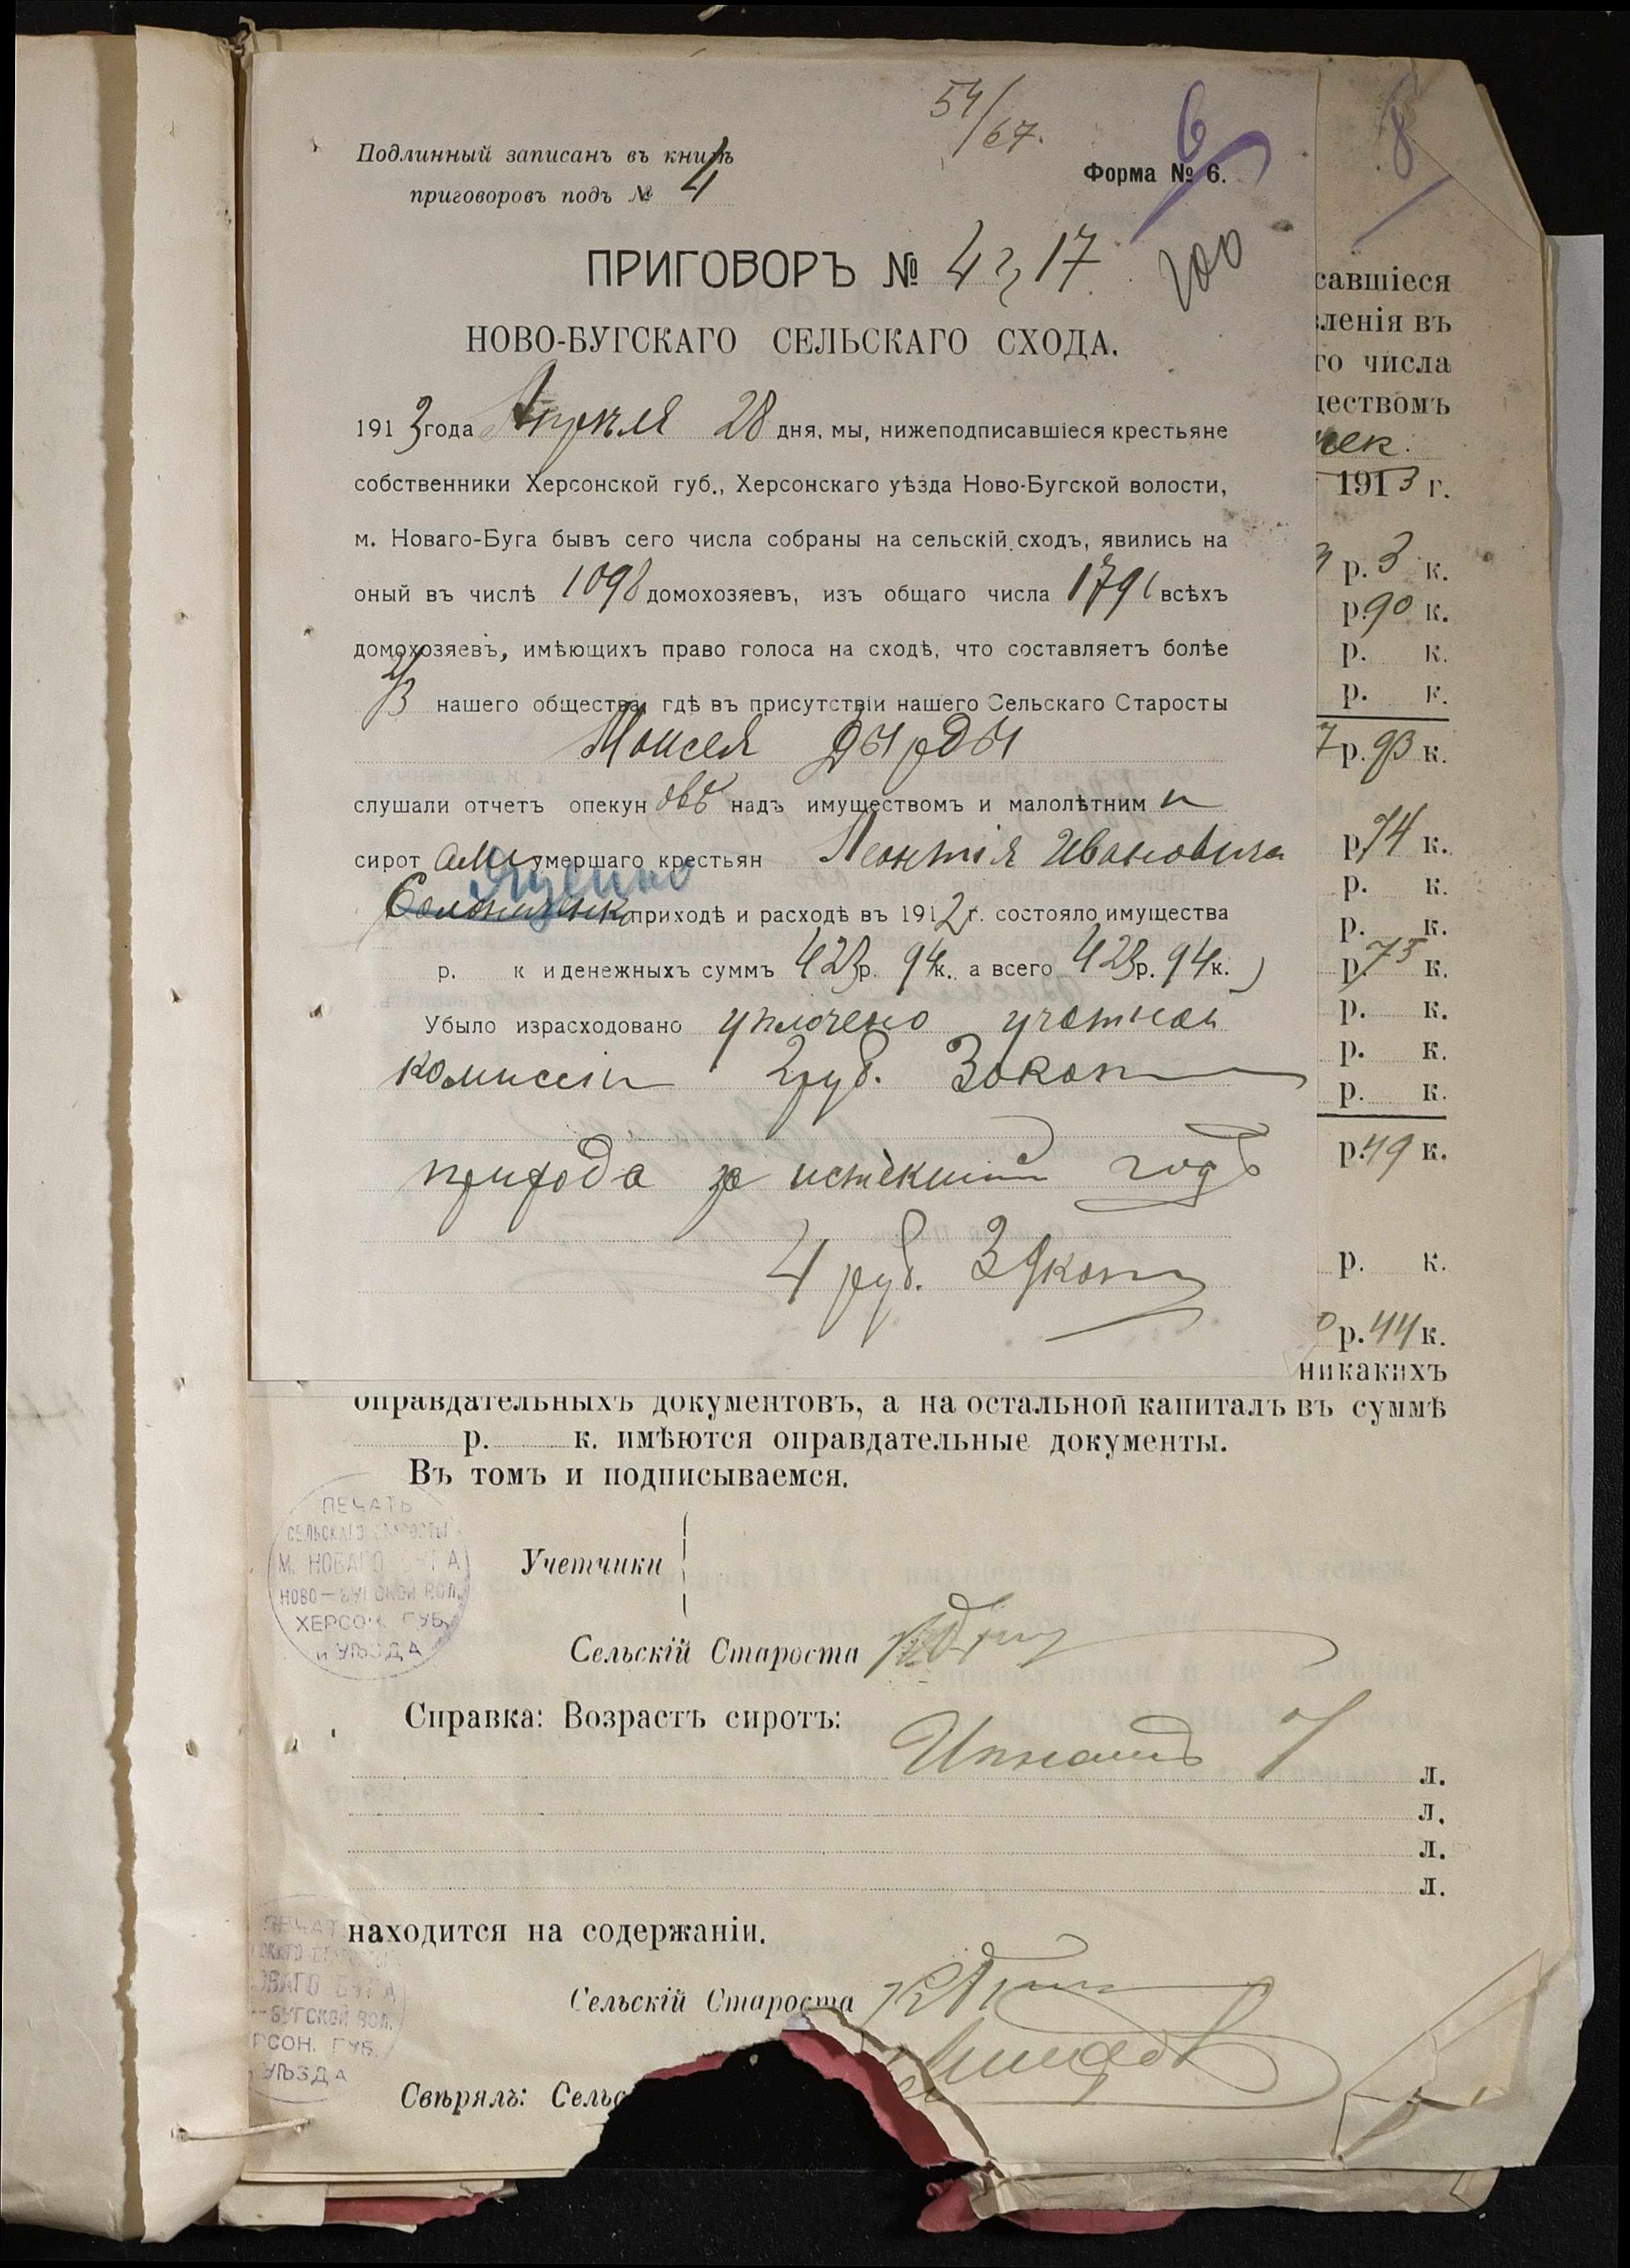 54/67.
6
8
Подлинный записанъ въ книгѣ
приговоровъ подъ № 4
Форма № 6.
ПРИГОВОРЪ № 4 17
200
НОВО-БУГСКАГО СЕЛЬСКАГО СХОДА.
1913 года Апрѣля 28 дня, мы, нижеподписавшіеся крестьяне
собственники Херсонской губ., Херсонскаго уѣзда Ново-Бугской волости,
м. Новаго-Буга бывъ сего числа собраны на сельскій сходъ, явились на
оный въ числѣ 1098 домохозяевъ, изъ общаго числа 1791 всѣхъ
домохозяевъ, имѣющихъ право голоса на сходѣ, что составляетъ болѣе
2/3 нашего общества, гдѣ въ присутствіи нашего Сельскаго Старосты
Моисея Дырды
слушали отчетъ опекуновъ надъ имуществомъ и малолѣтними
сиротами умершаго крестьян Леонтія Ивановича
Яценко
приходѣ и расходѣ въ 1912 г. состояло имущества
р. к и денежныхъ суммъ 423 р. 94 к. а всего 423 р. 94 к.
Убыло израсходовано уплочено учотной
комиссіи 2 руб. 30 коп
прихода за истекший годъ
4 руб. 39 коп
савшіеся
ленія въ
го числа
ществомъ
нек.
1913 г.
р. 3 к.
р. 90 к.
р. к.
р. к.
7 р. 93 к.
р. 74 к.
р. к.
р. к.
р. 75 к.
р. к.
р. к.
р. к.
р. 49 к.
р. к.
0 р. 44 к.
никакихъ
оправдательныхъ документовъ, а на остальной капиталъ въ суммѣ
р. к. имѣются оправдательные документы.
Въ томъ и подписываемся.
ПЕЧАТЬ
СЕЛЬСКАГО СТАРОСТЫ
М. НОВАГО БУГА
НОВО-БУГСКОЙ ВОЛ.
ХЕРСОН. ГУБ.
и УѢЗДА
Учетчики
Сельскій Староста
Справка: Возрастъ сиротъ:
Игнатъ 7 л.
л.
л.
л.
находится на содержаніи.
ПЕЧАТ
ОВАГО БУГА
-БУГСКОЙ ВОЛ.
РСОН. ГУБ.
УѢЗДА
Сельскій Староста
Свѣрялъ: Сельс